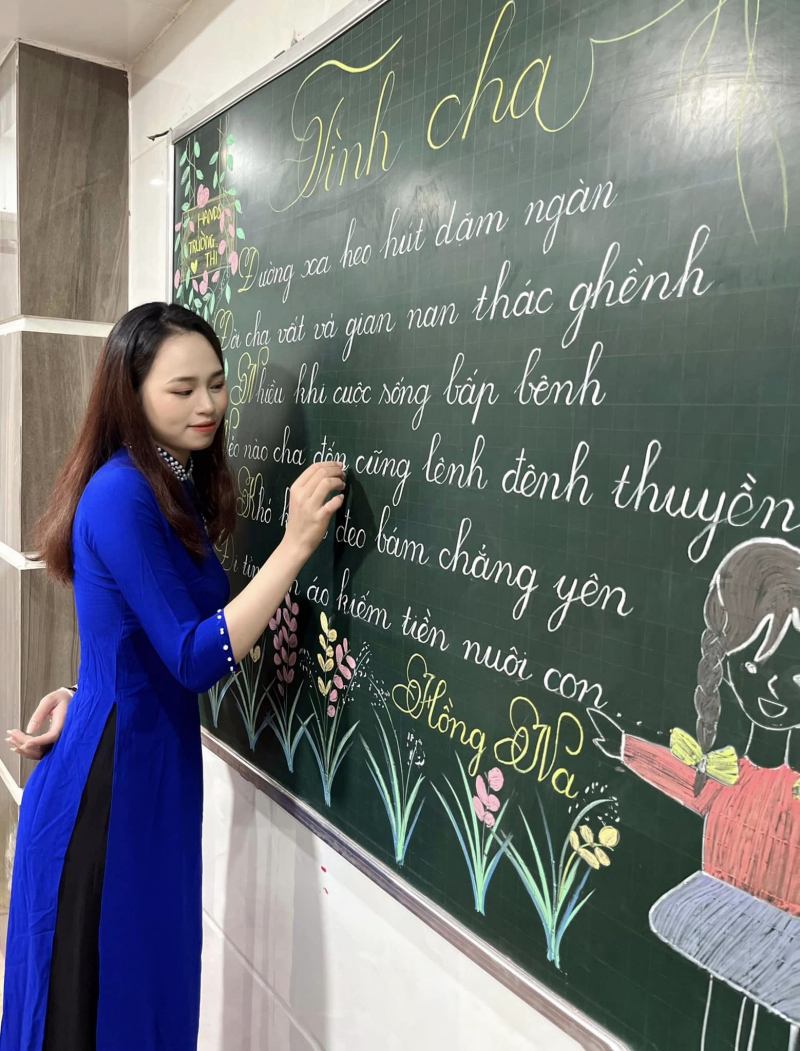 Tình cha
HANDS
TRƯỜNG
THI
Đường xa heo hút dặm ngàn
Đời cha vất vả gian nan thác ghềnh
Nhiều khi cuộc sống bấp bênh
nào cha đến cũng lênh đênh thuyền
Khó đeo bám chẳng yên
áo kiếm tiền nuôi con...
Hồng Na